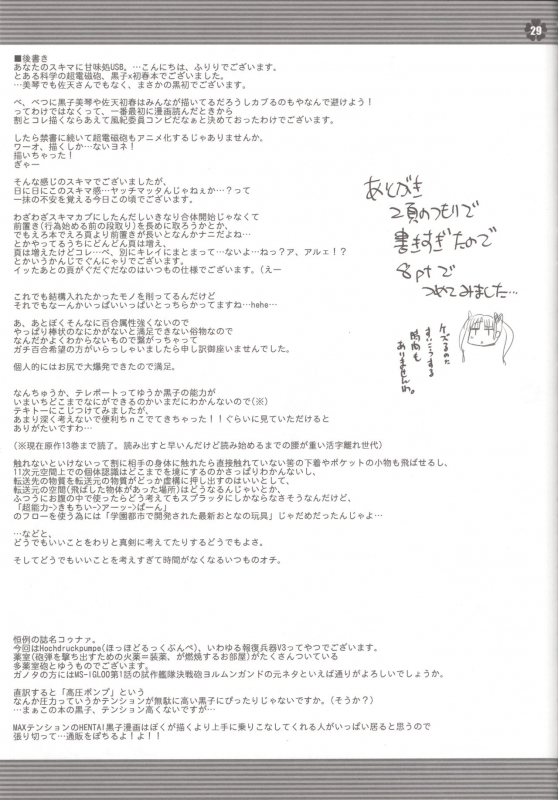 29
■後書き
あなたのスキマに甘味処USB。…こんにちは、ふりりでございます。
とある科学の超電磁砲、黒子x初春本でございました。
…美琴でも佐天さんでもなく、まさかの黒初でございます。
べ、べつに黒子美琴や佐天初春はみんなが描いてるだろうしカブるのもやなんで避けよう！
ってわけではなくって、一番最初に漫画読んだときから
割とコレ描くならあえて風紀委員コンビだなぁと決めておったわけでございます。
したら禁書に続いて超電磁砲もアニメ化するじゃありませんか。
ワーオ、描くしか…ないヨネ！
描いちゃった！
ぎゃー
そんな感じのスキマでございましたが、
日に日にこのスキマ感…ヤッチマッタんじゃねぇか…？って
一抹の不安を覚える今日この頃でございます。
わざわざスキマカプにしたんだしいきなり合体開始じゃなくて
前置き(行為始める前の段取り)を長めに取ろうかとか、
でもえろ本でえろ頁より前置きが長いとなんかナニだよね…
とかやってるうちにどんどん頁は増え、
頁は増えたけどコレ…べ、別にキレイにまとまって…ないよ…ねっ？ア、アルェ！？
とかいうかんじでぐんにゃりでございます。
イッたあとの頁がぐだぐだなのはいつもの仕様でございます。(えー
これでも結構入れたかったモノを削ってるんだけど
それでもなーんかいっぱいいっぱいとっちらかってますね…hehe…
あ、あとぼくそんなに百合属性強くないので
やっぱり棒状のなにかがないと満足できない俗物なので
なんだかよくわからないもので繋がっちゃって
ガチ百合希望の方がいらっしゃいましたら申し訳御座いませんでした。
個人的にはお尻で大爆発できたので満足。
なんちゅうか、テレポートってゆうか黒子の能力が
いまいちどこまでなにができるのかいまだにわかんないので(※)
テキトーにこじつけてみましたが、
あまり深く考えないで便利ちnこでてきちゃった！！ぐらいに見ていただけると
ありがたいですわ…
(※現在原作13巻まで読了。読み出すと早いんだけど読み始めるまでの腰が重い活字離れ世代)
触れないといけないって割に相手の身体に触れたら直接触れていない筈の下着やポケットの小物も飛ばせるし、
11次元空間上での個体認識はどこまでを境にするのかさっぱりわかんないし、
転送先の物質を転送元の物質がどっか虚構に押し出すのはいいとして、
転送元の空間(飛ばした物体があった場所)はどうなるんじゃいとか、
ふつうにお腹の中で使ったらどう考えてもスプラッタにしかならなさそうなんだけど、
「超能力->きもちい->アーッ->ぱーん」
のフローを使う為には「学園都市で開発された最新おとなの玩具」じゃだめだったんじゃよ…
…などと、
どうでもいいことをわりと真剣に考えてたりするどうでもよさ。
そしてどうでもいいことを考えすぎて時間がなくなるいつものオチ。
恒例の誌名コゥナァ。
今回はHochdruckpumpe(ほっほどるっくぷんぺ)、いわゆる報復兵器V3ってやつでございます。
薬室(砲弾を撃ち出すための火薬＝装薬、が燃焼するお部屋)がたくさんついている
多薬室砲とゆうものでございます。
ガノタの方にはMS-IGLOO第1話の試作艦隊決戦砲ヨルムンガンドの元ネタといえば通りがよろしいでしょうか。
直訳すると「高圧ポンプ」という
なんか圧力っていうかテンションが無駄に高い黒子にぴったりじゃないですか。(そうか？)
…まぁこの本の黒子、テンション高くないですが…
MAXテンションのHENTAI黒子漫画はぼくが描くより上手に乗りこなしてくれる人がいっぱい居ると思うので
張り切って…通販をぽちるよ！よ！！
あとがき
2頁のつもりで
書きすぎたので
8ptで
つめてみました…
ケズるのに
すいこうする
時間も
ありませんわ。